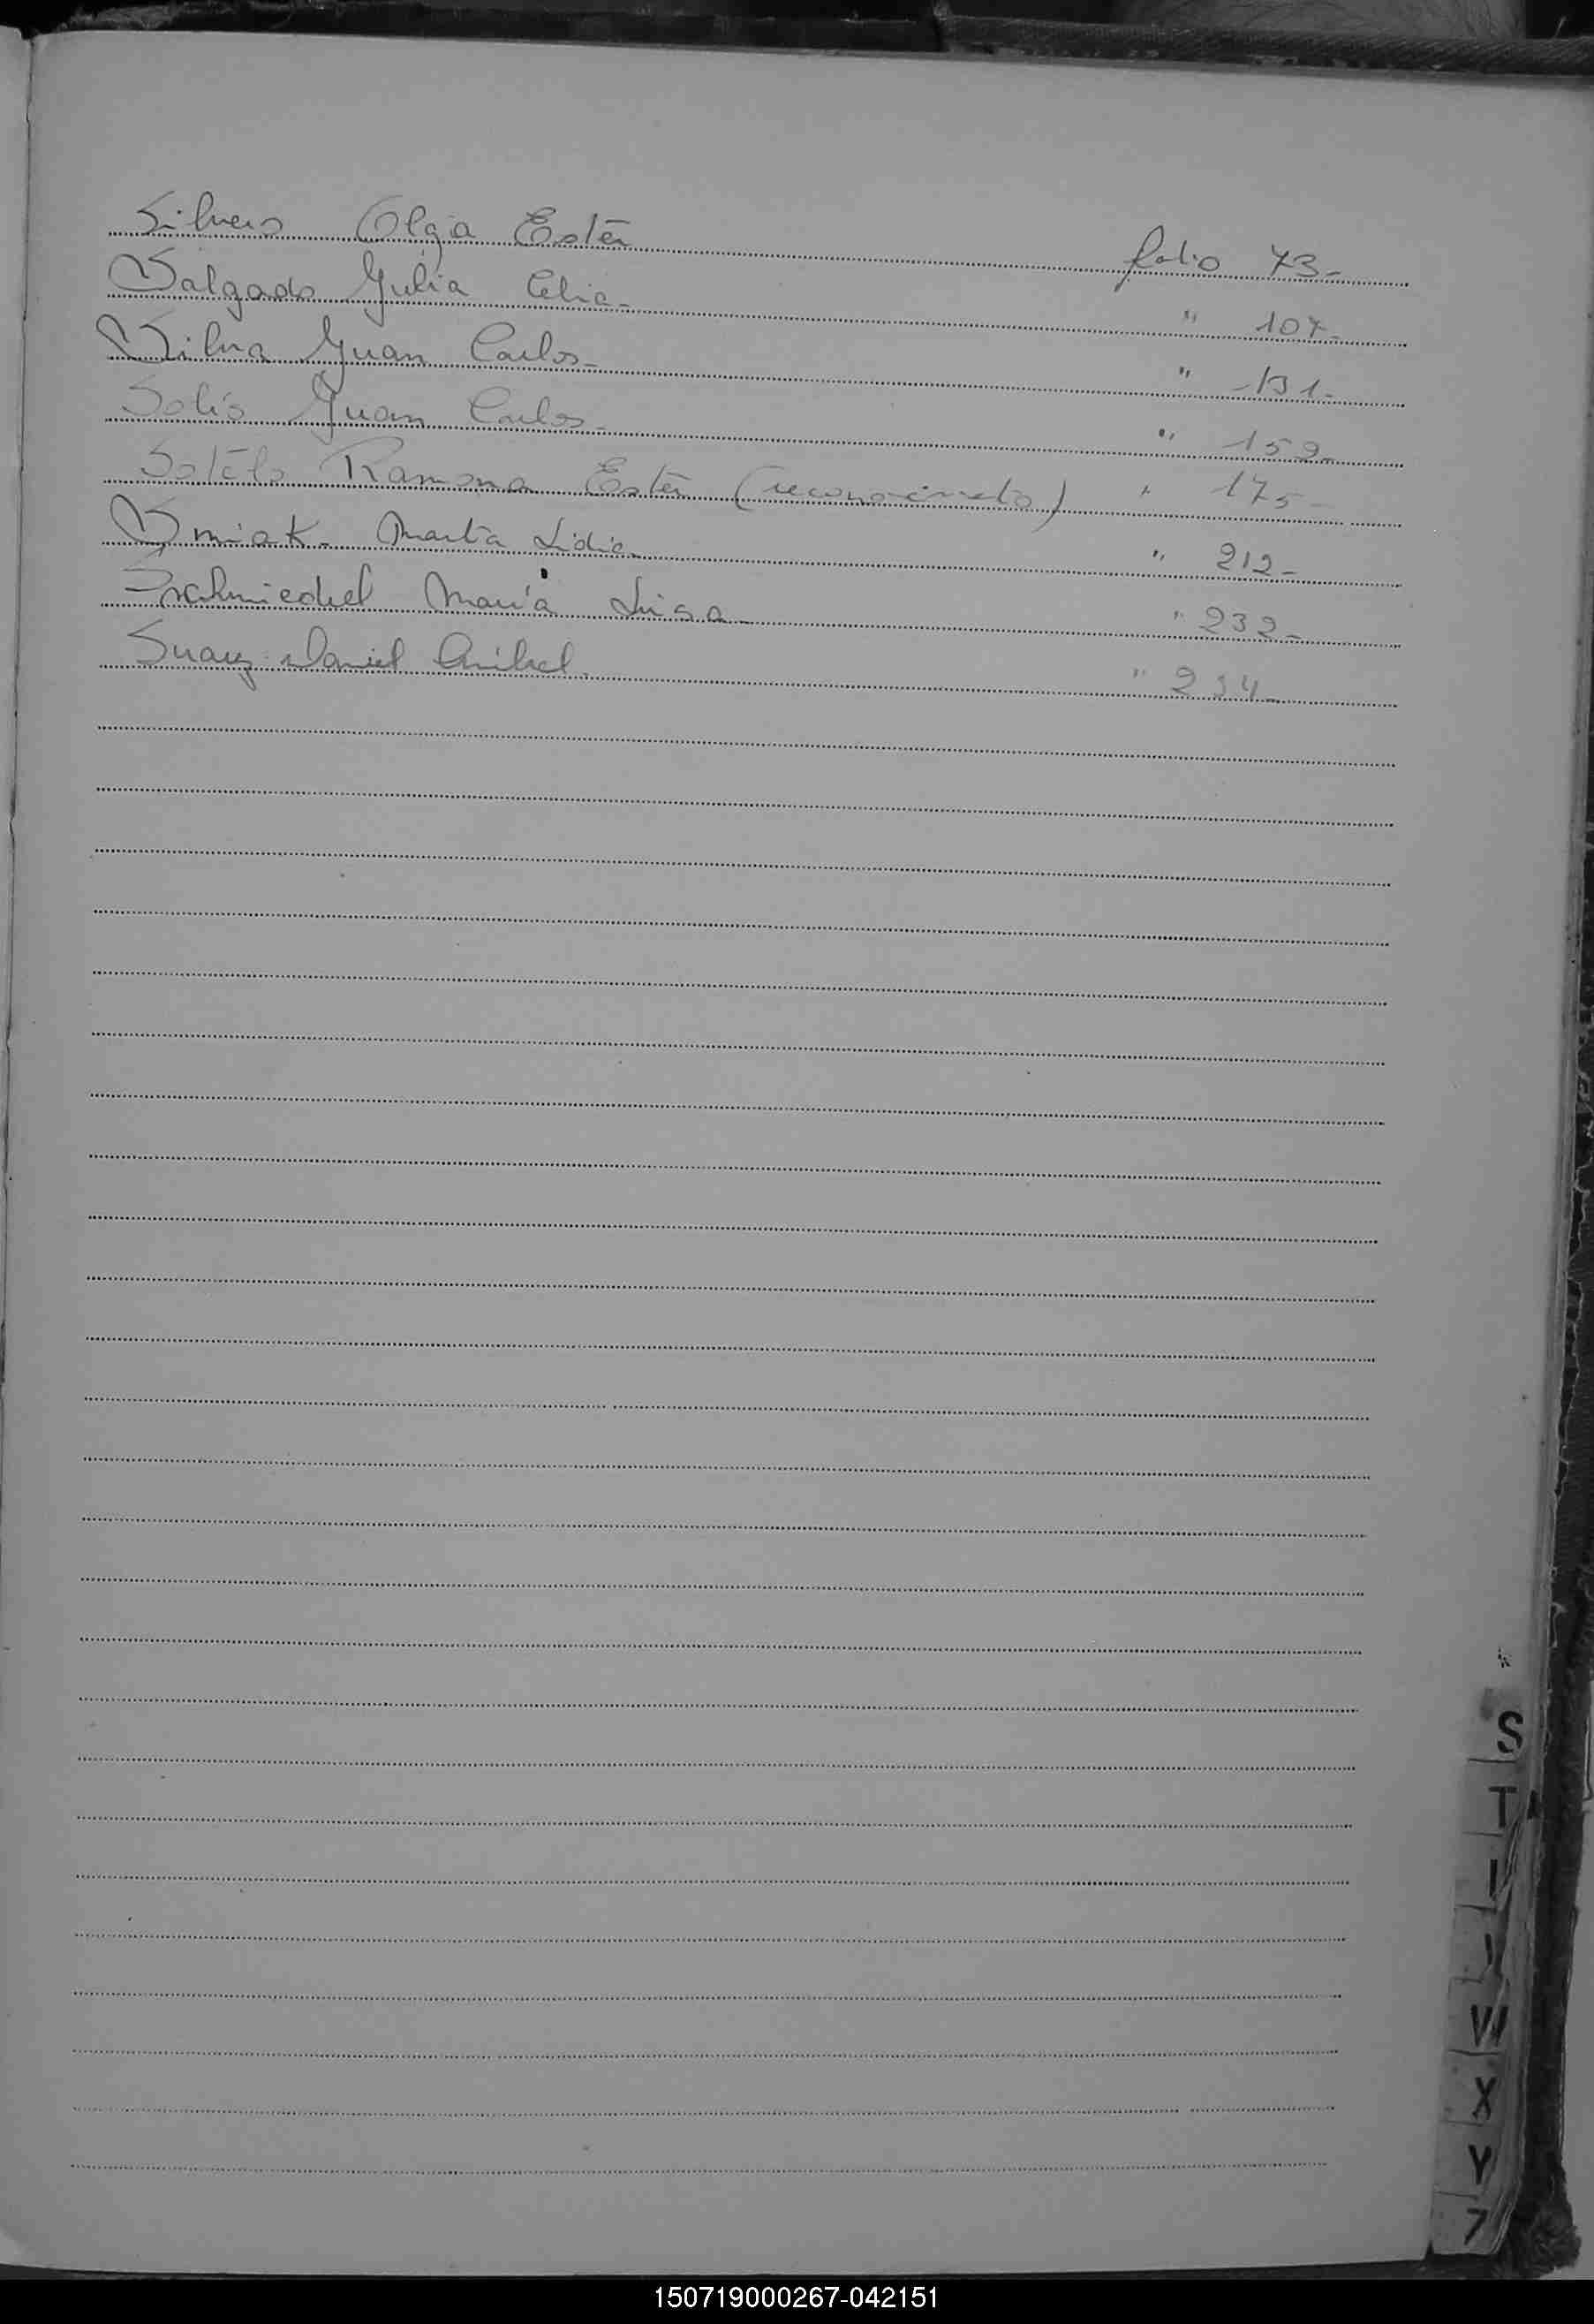 Silvero Olga Ester folio 73-
Salgado Julia Celia- " 107-
Silva Juan Carlos- " 131-
Solis Juan Carlos- " 159-
Sotelo Ramona Ester (reconocimiento) " 175-
Smiak- Marta Lidia- " 212-
María Luisa- " 232-
Suarez Daniel Anibal. " 234-
S
T
W
X
Y
Z
150719000267-042151